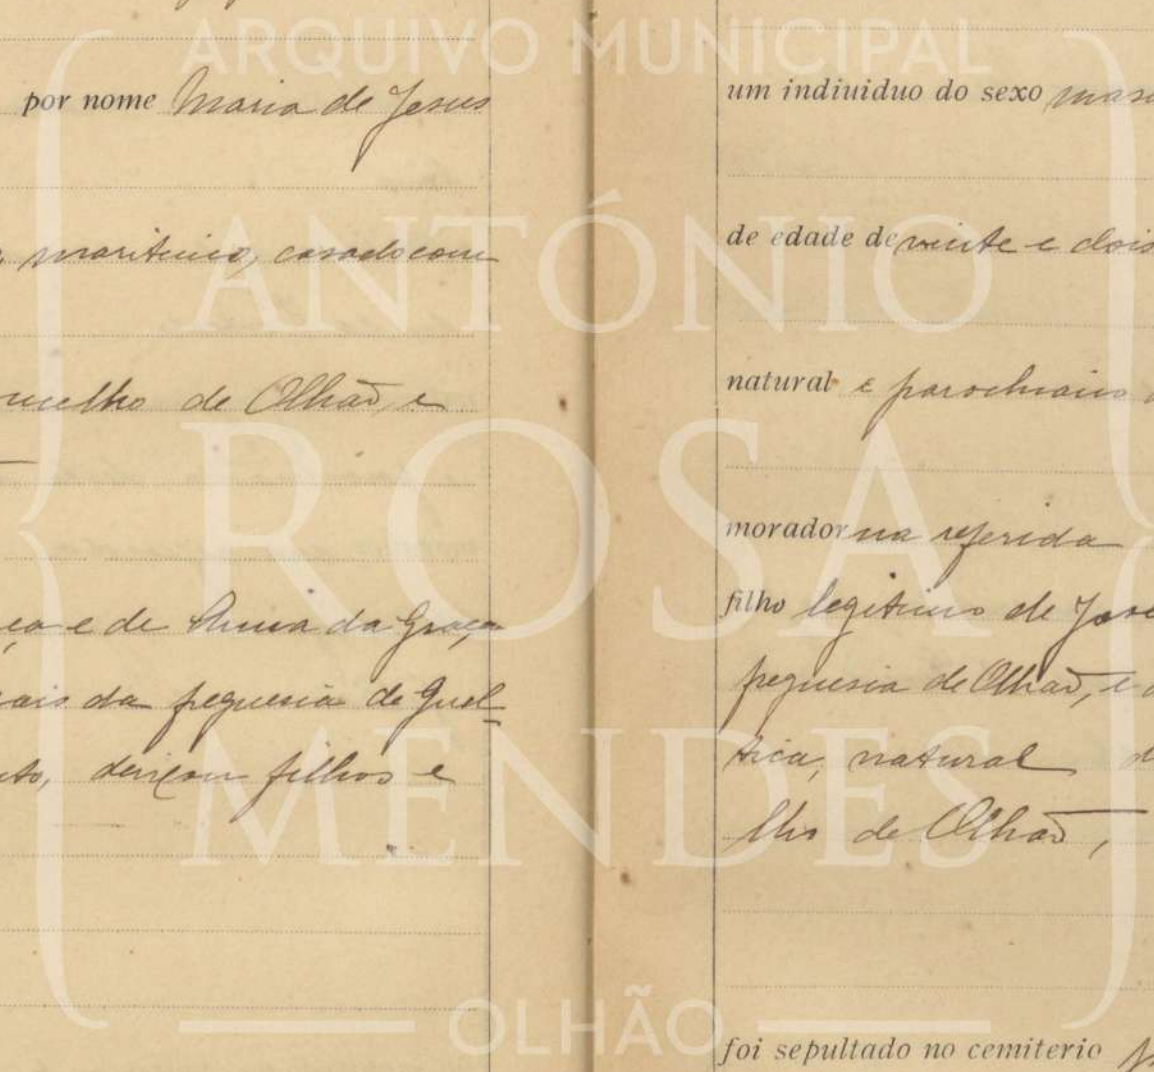 ARQUIVO MUNICIPAL
ANTÓNIO
ROSA
MENDES
OLHÃO
por nome Maria de Jesus
maritimo, casado com
de Olhão, e
e de Anna da Graça
da freguesia de Quel-
deixou filhos e
um indiuiduo do sexo mas
de edade de vinte e dois
natural e parochiano
morador na referida
filho legitimo de José
freguesia de Olhão, e
tica, natural
lho de Olhão,
foi sepultado no cemiterio